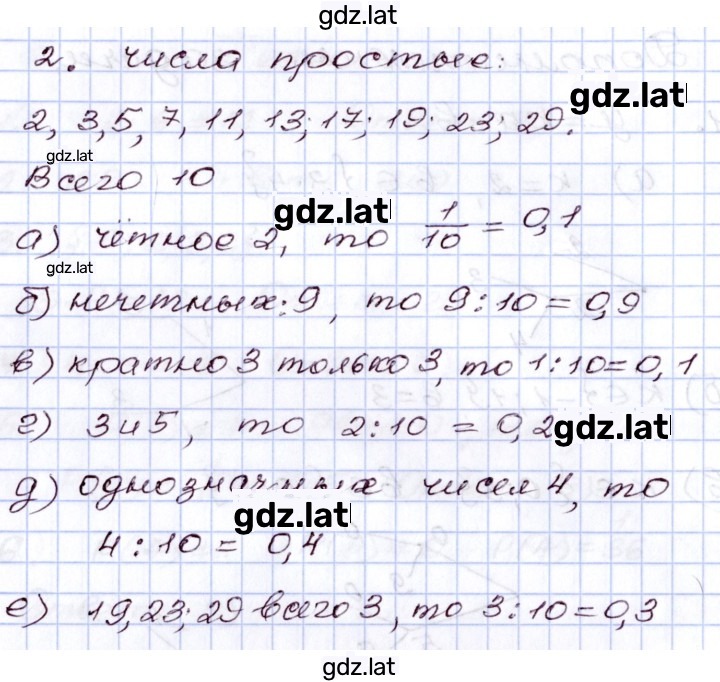 gdz.lat
2. числа простые:
gdz.lat
2, 3, 5, 7, 11, 13; 17; 19; 23; 29.
gdz.lat
Всего 10
gdz.lat
а) чётное 2, то 1/10 = 0,1
gdz.lat
б) нечетных: 9, то 9 : 10 = 0,9
в) кратно 3 только 3, то 1 : 10 = 0,1
г) 3 и 5, то 2 : 10 = 0,2
gdz.lat
д) однозначных чисел 4, то
gdz.lat
4 : 10 = 0,4
е) 19, 23; 29 всего 3, то 3 : 10 = 0,3
gdz.lat